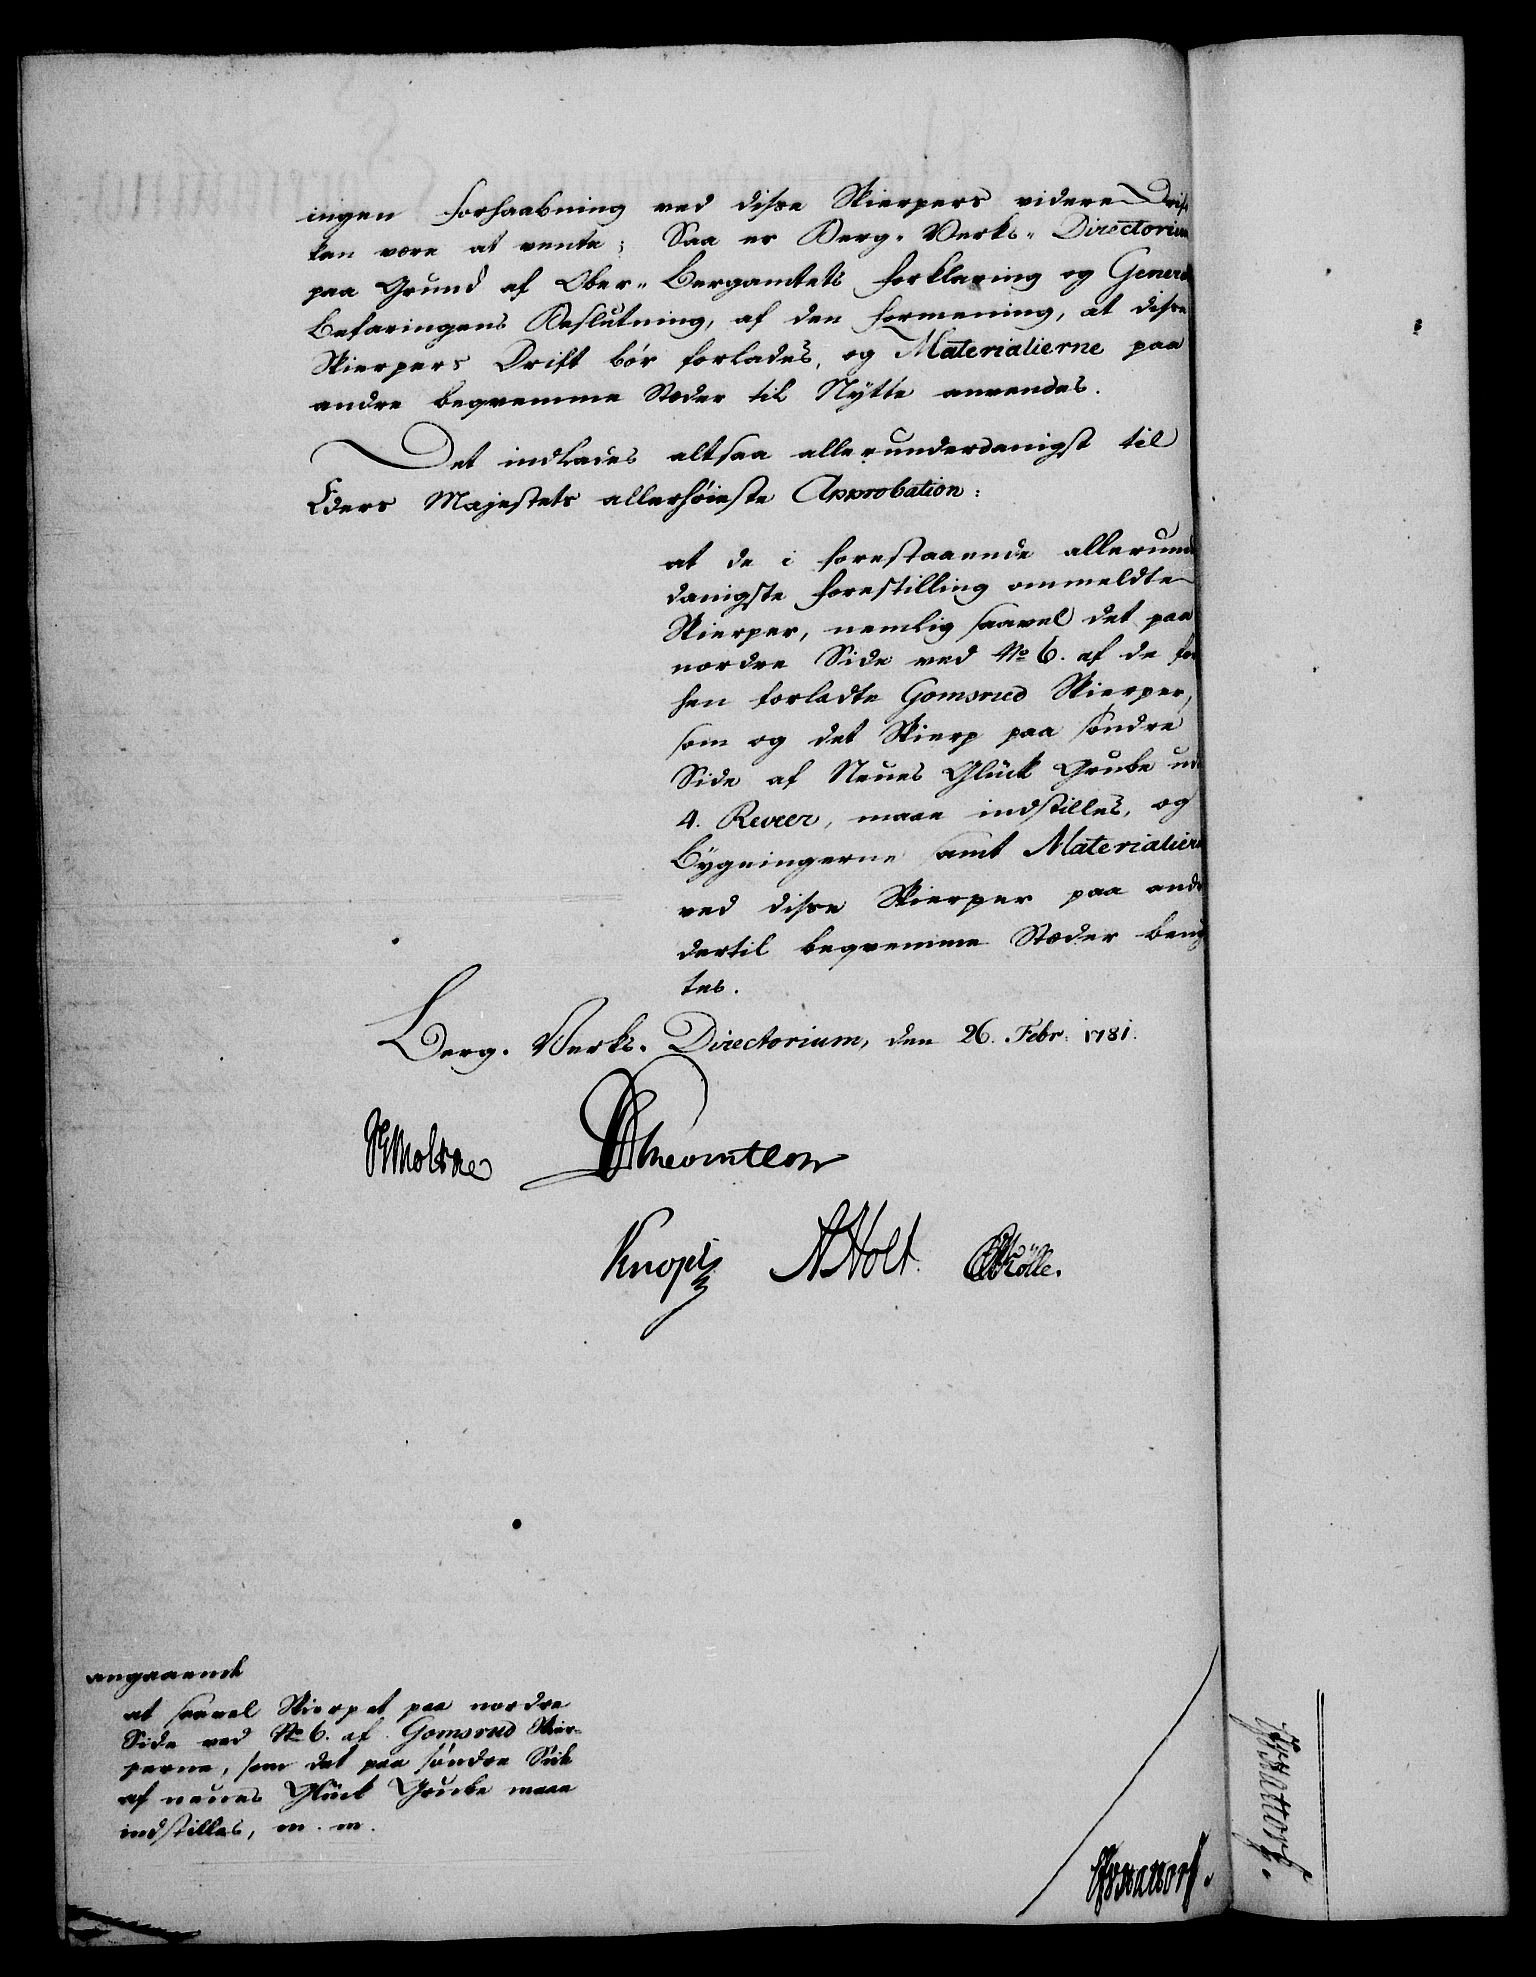 ingen Forhaabning ved disse Skierpers videre Drif
kan være at vente; Saa er Berg-Verks-Directorium
paa Grund af Ober-Bergamtets Forklaring og General
Befaringens Beslutning, af den Formening, at disse
Skierpers Drift bør forlades, og Materialierne paa
andre beqvemme Stæder til Nÿtte anvendes.
Det indlades altsaa allerunderdanigst til
Eders Majestets allerhöieste Approbation:
at de i forestaaende allerund
danigste Forestilling ommeldte
Skierper, nemlig saavel det paa
nordre Side ved No 6. af de for
hen forladte Gomsrud Skierper,
som og det Skierp paa söndre
Side af Neues Glück Grube ud
4. Reveer, maae indstilles, og
Bÿgningerne samt Materialiern
ved disse Skierper paa andr
dertil beqvemme Stæder benÿ
tes.
Berg-Verks-Directorium, den 26. Febr: 1781.
Moltke
Knopf
Holt
angaaende
at saavel Skierpet paa nordre
Side ved No 6. af Gomsrud Skier-
perne, som det paa söndre Side
af neues Glück Grube maae
indstilles, m. m.